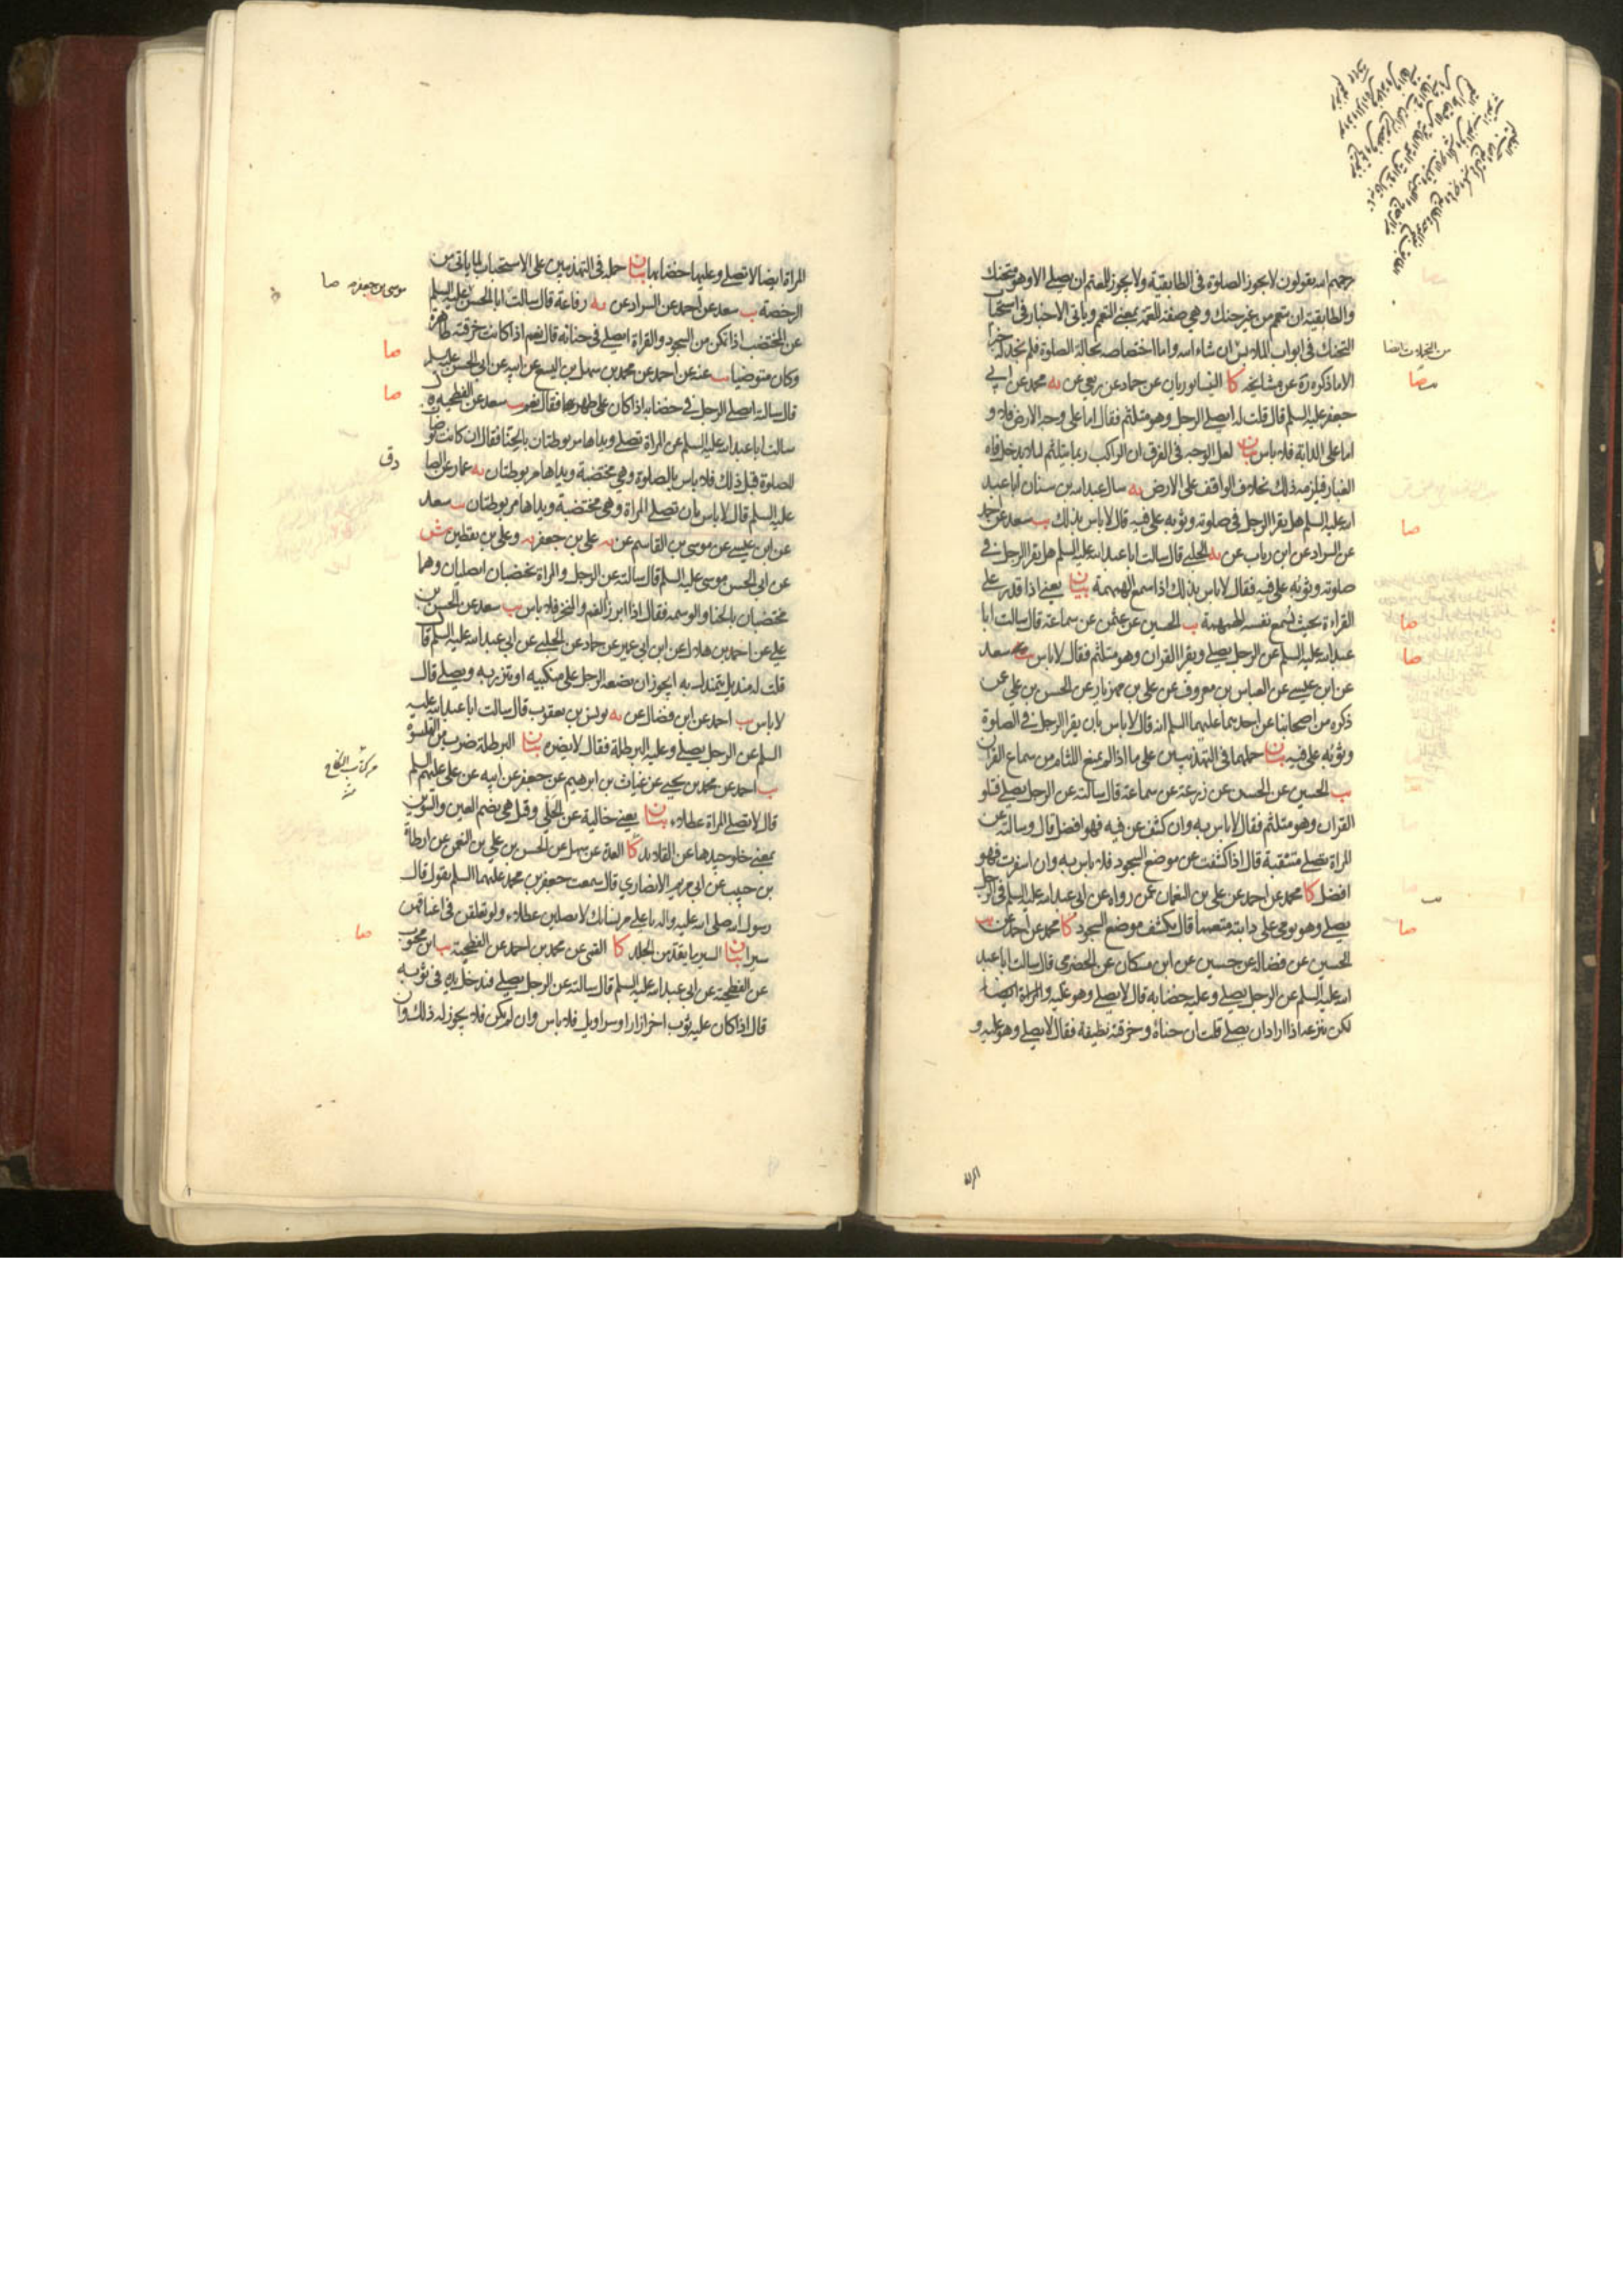 رحمهم الله يقولون لا يجوز الصلوة في الطابقية ولا يجوز للمعتم ان يصلي الا وهو متحنك
والطابقية ان تعمم من غير حنك وهي صفة للعمة بمعنى التعمم وياتي الاخبار في استحباب
التحنك في ابواب الملابس ان شاء الله واما اختصاصه بحالة الصلوة فلم نجد له خبرا
الا ما ذكره ره عن مشايخه كا النيسابوريان عن حماد عن ربعي عن به محمد عن ابي
جعفر عليه السلم قال قلت له ايصلي الرجل وهو متلثم فقال اما على وجه الارض فلا و
اما على الدابة فلا باس بيان لعل الوجه في الفرق ان الراكب ربما يتلثم لئلا يدخل فاه
الغبار فيلزمه ذلك بخلاف الواقف على الارض يه سال عبد الله بن سنان ابا عبد
الله عليه السلم هل يقرا الرجل في صلوته وثوبه على فيه قال لا باس بذلك يب سعد عن احمد
عن السراد عن ابن رياب عن به الحلبي قال سالت ابا عبد الله عليه السلم هل يقرا الرجل في
صلوته وثوبه على فيه فقال لا باس بذلك اذا سمع الهمهمة بيان يعني اذا قدر على
القراءة بحيث تسمع نفسه الهمهمة يب الحسين عن عثمن عن سماعة قال سالت ابا
عبد الله عليه السلم عن الرجل يصلي ويقرا القران وهو متلثم فقال لا باس يب سعد
عن ابن عيسى عن العباس بن معروف عن علي بن مهزيار عن الحسن بن علي عن
ذكره من اصحابنا عن احدهما عليهما السلم انه قال لا باس بان يقرا الرجل في الصلوة
وثوبه على فيه بيان حملهما في التهذيبين على ما اذا لم يمنع اللثام من سماع القران
يب الحسين عن الحسن عن زرعة عن سماعة قال سالته عن الرجل يصلي فتلو
القران وهو متلثم فقال لا باس به وان كشف عن فيه فهو افضل قال وسالته عن
المراة تصلي متنقبة قال اذا كشفت عن موضع السجود فلا باس به وان اسفرت فهو
افضل كا محمد عن احمد عن علي بن النعمان عمن رواه عن ابي عبد الله عليه السلم في الرجل
يصلي وهو يومي على دابته متعمما قال يكشف موضع السجود كا محمد عن احمد عن يب
الحسين عن فضالة عن حسين عن ابن مسكان عن الحضرمي قال سالت ابا عبد
الله عليه السلم عن الرجل يصلي وعليه خضابه قال لا يصلي وهو عليه والمراة ايضا
لكن ينزعه اذا اراد ان يصلي قلت ان حناه وخرقته نظيفة فقال لا يصلي وهو عليه و
من التجملات ايضا
صا
صا
صا
صا
صا
المراة ايضا لا تصلي وعليها خضابها بيان حمله في التهذيبين على الاستحباب لما ياتي من
الرخصة يب سعد عن احمد عن السراد عن به رفاعة قال سالت ابا الحسن عليه السلم
عن المختضب اذا تمكن من السجود والقراة ايصلي في حنائه قال نعم اذا كانت خرقته طاهرة
وكان متوضيا يب عنه عن احمد عن محمد بن سهل بن اليسع عن ابيه عن ابي الحسن عليه السلم
قال سالته ايصلي الرجل في خضابه اذا كان على طهر فقال نعم يب سعد عن الفطحية
سالت ابا عبد الله عليه السلم عن المراة تصلي ويداها مربوطتان بالحنا فقال ان كانت توضات
للصلوة قبل ذلك فلا باس بالصلوة وهي مختضبة ويداها مربوطتان يه عمار عن الصا
عليه السلم قال لا باس بان تصلي المراة وهي مختضبة ويداها مربوطتان يب سعد
عن ابن عيسى عن موسى بن القاسم عن به علي بن جعفر به وعلي بن يقطين ش
عن ابي الحسن موسى عليه السلم قال سالته عن الرجل والمراة يختضبان ايصليان وهما
مختضبان بالحنا والوسمة فقال اذا ابرز الفم والمنخر فلا باس يب سعد عن الحسن بن
علي عن احمد بن هلال عن ابن ابي عمير عن حماد عن الحلبي عن ابي عبد الله عليه السلم قال
قلت له منديل يتمندل به ايجوز ان يضعه الرجل على منكبيه او يتزر به ويصلي قال
لا باس يب احمد عن ابن فضال عن به يونس بن يعقوب قال سالت ابا عبد الله عليه
السلم عن الرجل يصلي وعليه البرطلة فقال لا يضره بيان البرطلة ضرب من القلنسوة
يب احمد عن محمد بن يحيى عن غياث بن ابرهيم عن جعفر عن ابيه عن علي عليهم السلم
قال لا تصلي المراة عطلاء بيان يعني خالية عن الحلي وقيل هي بضم العين والتنوين
بمعنى خلو جيدها عن القلايد كا العدة عن سهل عن الحسن بن علي بن النعمن عن ارطاة
بن حبيب عن ابي مريم الانصاري قال سمعت جعفر بن محمد عليهما السلم يقول قال
رسول الله صلى الله عليه واله يا علي مر نسائك لا يصلين عطلاء ولو تعلقن في اعناقهن
سيرا بيان السير ما يقد من الجلد كا القمي عن محمد بن احمد عن الفطحية يب ابن محبوب
عن الفطحية عن ابي عبد الله عليه السلم قال سالته عن الرجل يصلي فيدخل يده في ثوبه
قال اذا كان عليه ثوب اخر ازار او سراويل فلا باس وان لم يكن فلا يجوز له ذلك وان
موسى بن جعفر به صا
صا
صا
دق
من كتاب النكاح
صا